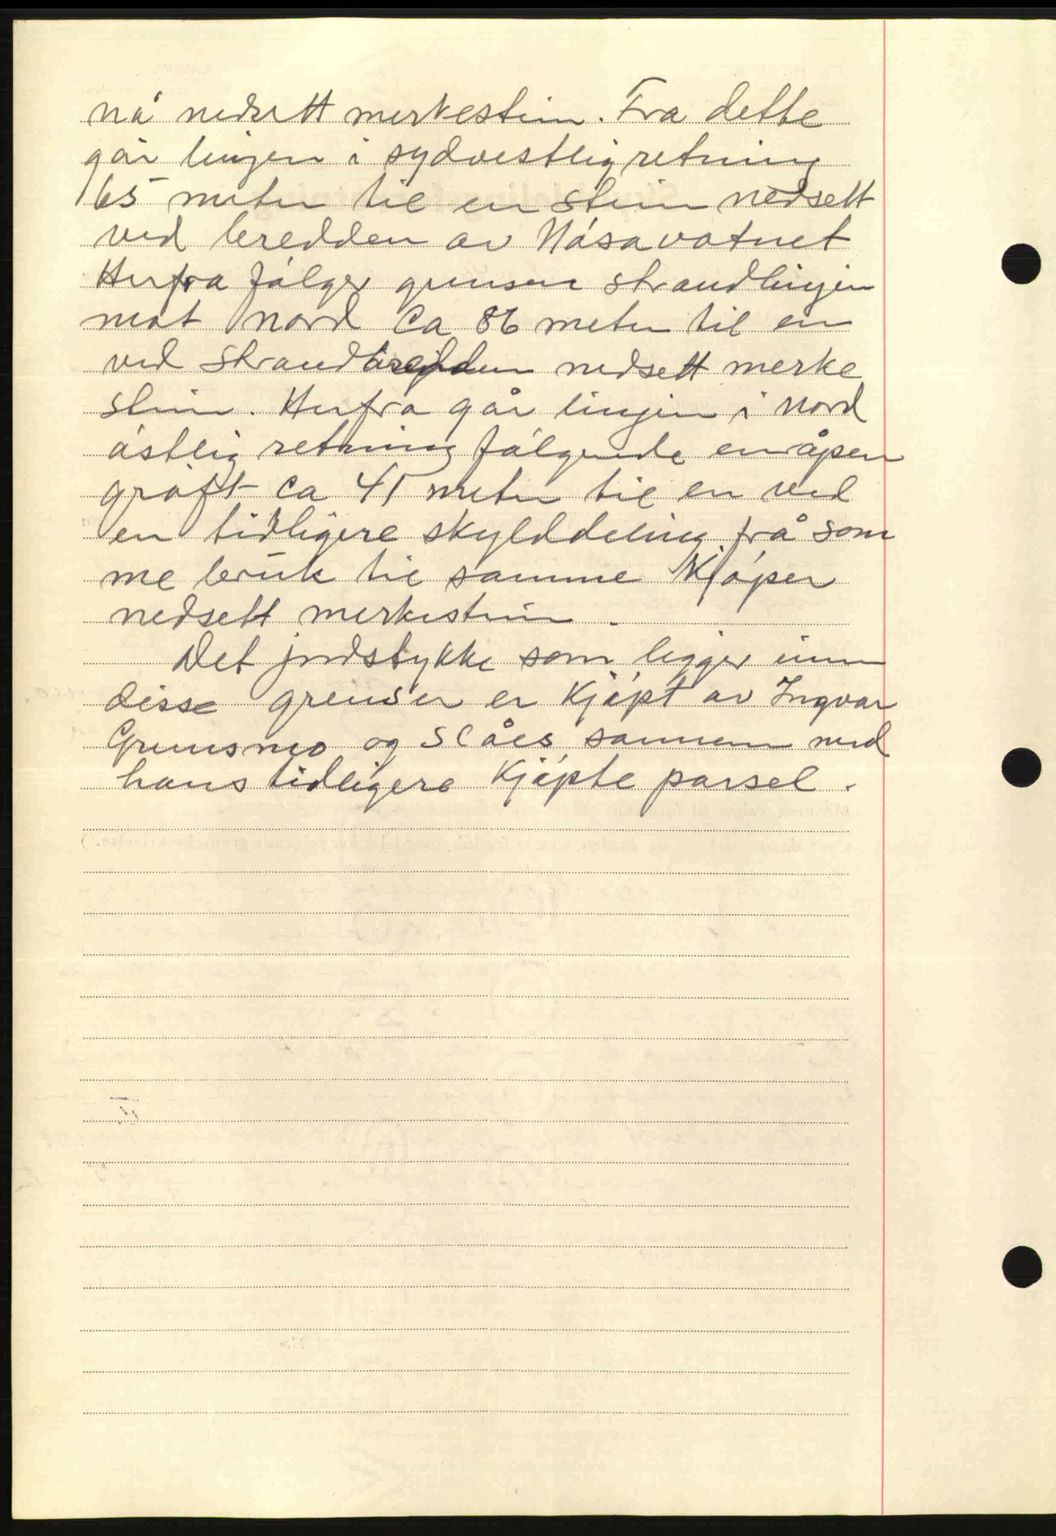 nå nedsett merkestein. Fra dette
går linjen i sydvestlig retning
165 meter til en stein nedsett
ved bredden av Nåsavatnet
Herfra følger grensen strandlinjen
mot nord ca 86 meter til en
ved strandbredden nedsett merke
stein. Herfra går linjen i nord
østlig retning følgende en åpen
grøft ca 45 meter til en ved
en tidligere skylddeling frå som
me bruk til samme kjøper
nedsett merkestein.
Det jordstykke som ligger innen
disse grenser er kjøpt av Ingvar
Grunsmo og slåes sammen med
hans tidligere kjøpte parsel.